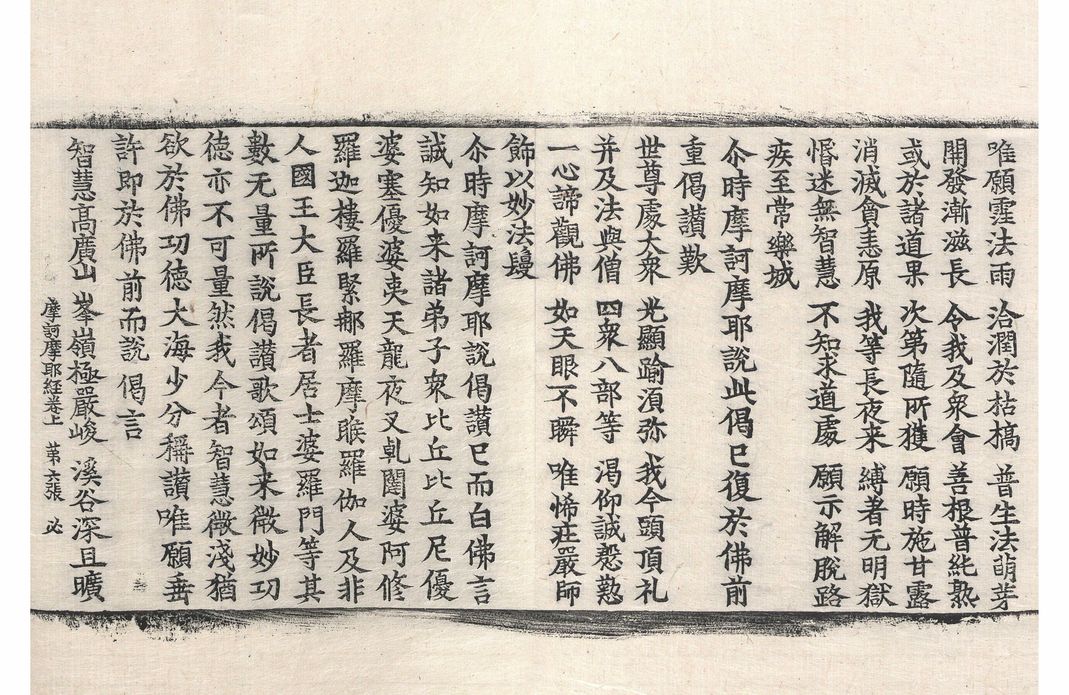 唯願霔法雨 洽潤於枯槁 普生法萌芽
開發漸滋長 令我及衆會 善根普純熟
或於諸道果 次第隨所獲 願時施甘露
消滅貪恚原 我等長夜来 縛著无明獄
惛迷無智慧 不知求道處 願示解脫路
疾至常樂城
尒時摩訶摩耶說此偈已復於佛前
重偈讃歎
世尊處大衆 光顯踰湏弥 我今頭頂礼
并及法與僧 四衆八部等 渴仰誠懇懃
一心諦觀佛 如天眼不瞬 唯悕莊嚴師
飾以妙法鬘
尒時摩訶摩耶說偈讃已而白佛言
誠知如来諸弟子衆比丘比丘尼優
婆塞優婆夷天龍夜叉乹闥婆阿修
羅迦樓羅緊那羅摩睺羅伽人及非
人國王大臣長者居士婆羅門等其
數无量所說偈讃歌頌如来微妙功
德亦不可量然我今者智慧微淺猶
欲於佛功德大海少分稱讃唯願垂
許即於佛前而說偈言
智慧高廣山 峯嶺極嚴峻 溪谷深且曠
摩訶摩耶經卷上 苐六張 必